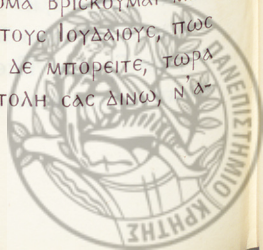 ΤΟΥΣ ΙΟΥΔΑΙΟΥΣ, ΠΩΣ
ΔΕ ΜΠΟΡΕΙΤΕ, ΤΩΡΑ
ΤΟΛΗ ΣΑΣ ΔΙΝΩ, Ν᾽Α-
ΠΑΝΕΠΙΣΤΗΜΙΟ ΚΡΗΤΗΣ